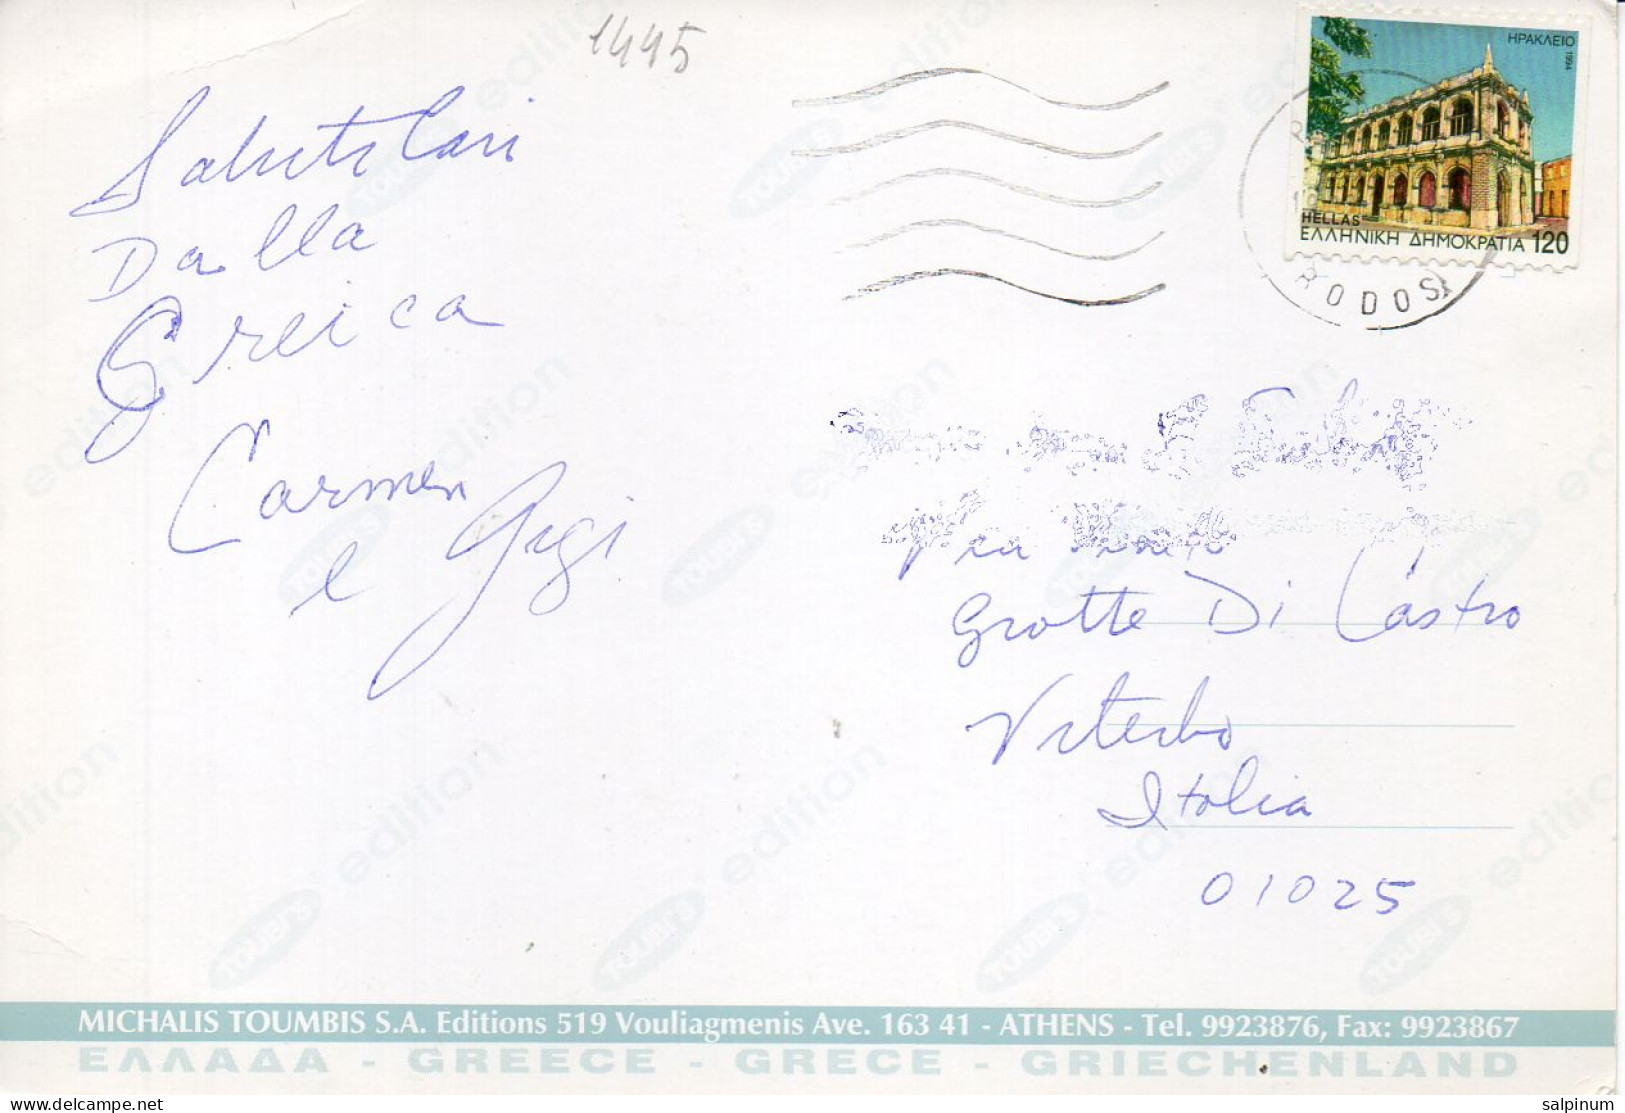 1445
ΗΡΑΚΛΕΙΟ
1994
HELLAS
ΕΛΛΗΝΙΚΗ ΔΗΜΟΚΡΑΤΙΑ 120
RODOS
Saluti Cari
Dalla
Greica
Carmen
e Gigi
Via
Grotte Di Castro
Viterbo
Italia
01025
TOUBI'S edition
MICHALIS TOUMBIS S.A. Editions 519 Vouliagmenis Ave. 163 41 - ATHENS - Tel. 9923876, Fax: 9923867
ΕΛΛΑΔΑ - GREECE - GRECE - GRIECHENLAND
delcampe.net
salpinum